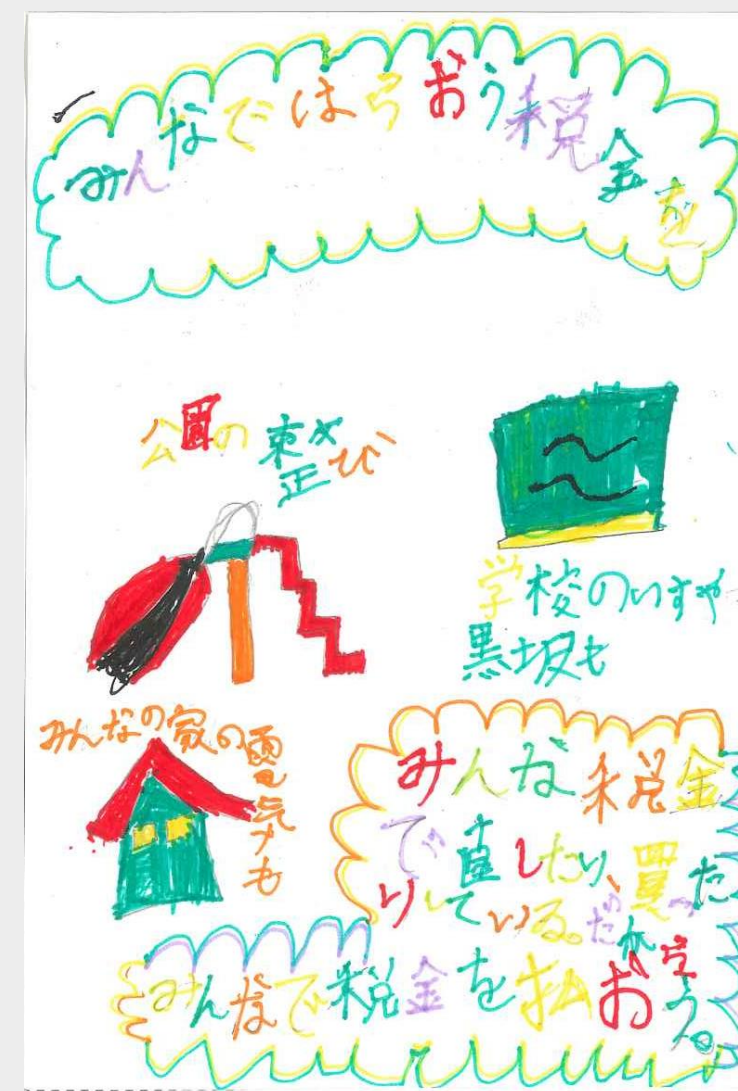 みんなではらおう税金を
公園の整び
学校のいすや
黒板も
みんなの家の電気も
みんな税金
で直したり、買った
りしている。だから
みんなで税金を払おう。